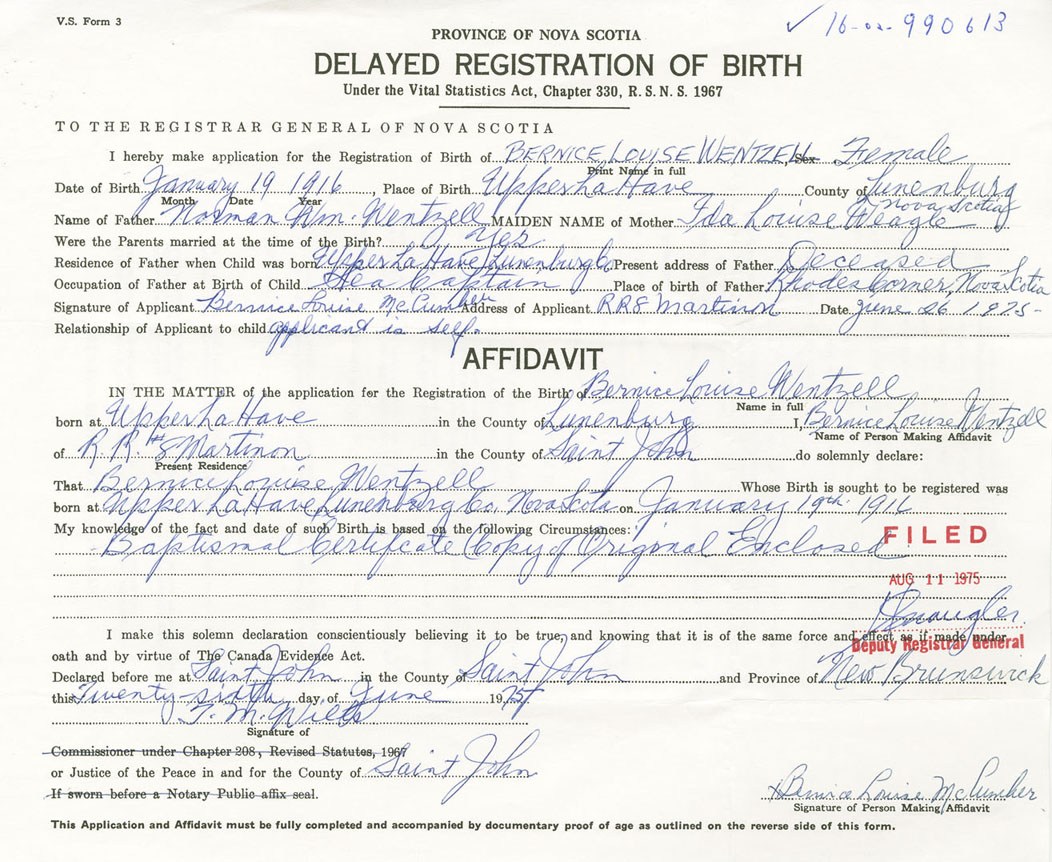 V.S. Form 3
✓ 16-02-990613
PROVINCE OF NOVA SCOTIA
DELAYED REGISTRATION OF BIRTH
Under the Vital Statistics Act, Chapter 330, R. S. N. S. 1967
TO THE REGISTRAR GENERAL OF NOVA SCOTIA
I hereby make application for the Registration of Birth of BERNICE LOUISE WENTZELL Sex Female
Print Name in full
Date of Birth January 19 1916, Place of Birth Upper La Have County of Lunenburg
Month Date Year Nova Scotia
Name of Father Norman Wm. Wentzell MAIDEN NAME of Mother Ida Louise Weagle
Were the Parents married at the time of the Birth? Yes
Residence of Father when Child was born Upper La Have Lunenburg Co. Present address of Father Deceased
Occupation of Father at Birth of Child Sea Captain Place of birth of Father Rhodes Corner, Nova Scotia
Signature of Applicant Bernice Louise McCumber Address of Applicant RR8 Martinon Date June 26 1975-
Relationship of Applicant to child applicant is self.
AFFIDAVIT
IN THE MATTER of the application for the Registration of the Birth of Bernice Louise Wentzell
Name in full
born at Upper La Have in the County of Lunenburg I, Bernice Louise Wentzell
Name of Person Making Affidavit
of R. R. #8 Martinon in the County of Saint John do solemnly declare:
Present Residence
That Bernice Louise Wentzell Whose Birth is sought to be registered was
born at Upper La Have, Lunenburg Co, Nova Scota on January 19th 1916
My knowledge of the fact and date of such Birth is based on the following Circumstances:
Baptismal Certifcate (Copy of Original Enclosed
FILED
AUG 11 1975
I make this solemn declaration conscientiously believing it to be true, and knowing that it is of the same force and effect as if made under
Deputy Registrar General
oath and by virtue of The Canada Evidence Act.
Declared before me at Saint John in the County of Saint John and Province of New Brunswick
this Twenty-sixth day of June 1975
Signature of
Commissioner under Chapter 208, Revised Statutes, 1967
or Justice of the Peace in and for the County of Saint John
If sworn before a Notary Public affix seal.
x Bernice Louise McCumber
Signature of Person Making Affidavit
This Application and Affidavit must be fully completed and accompanied by documentary proof of age as outlined on the reverse side of this form.